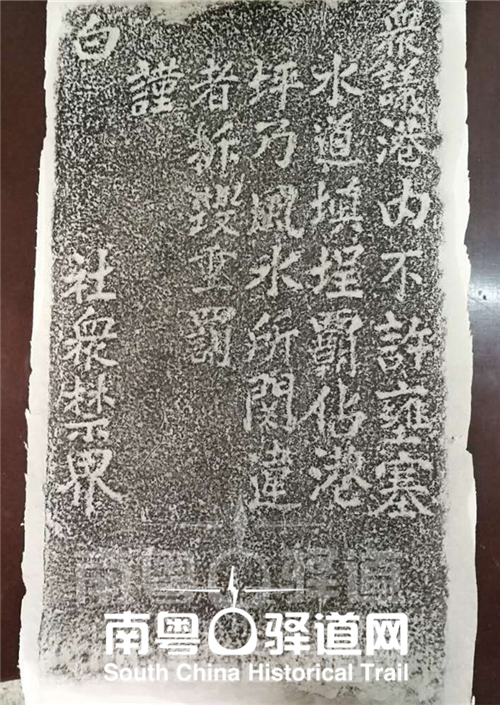 衆議港内不許壅塞
水道填埋霸佔港
坪乃風水所関違
者拆毀重罰
謹
白
社衆禁界
南粤驿道
南粤驿道网
South China Historical Trail